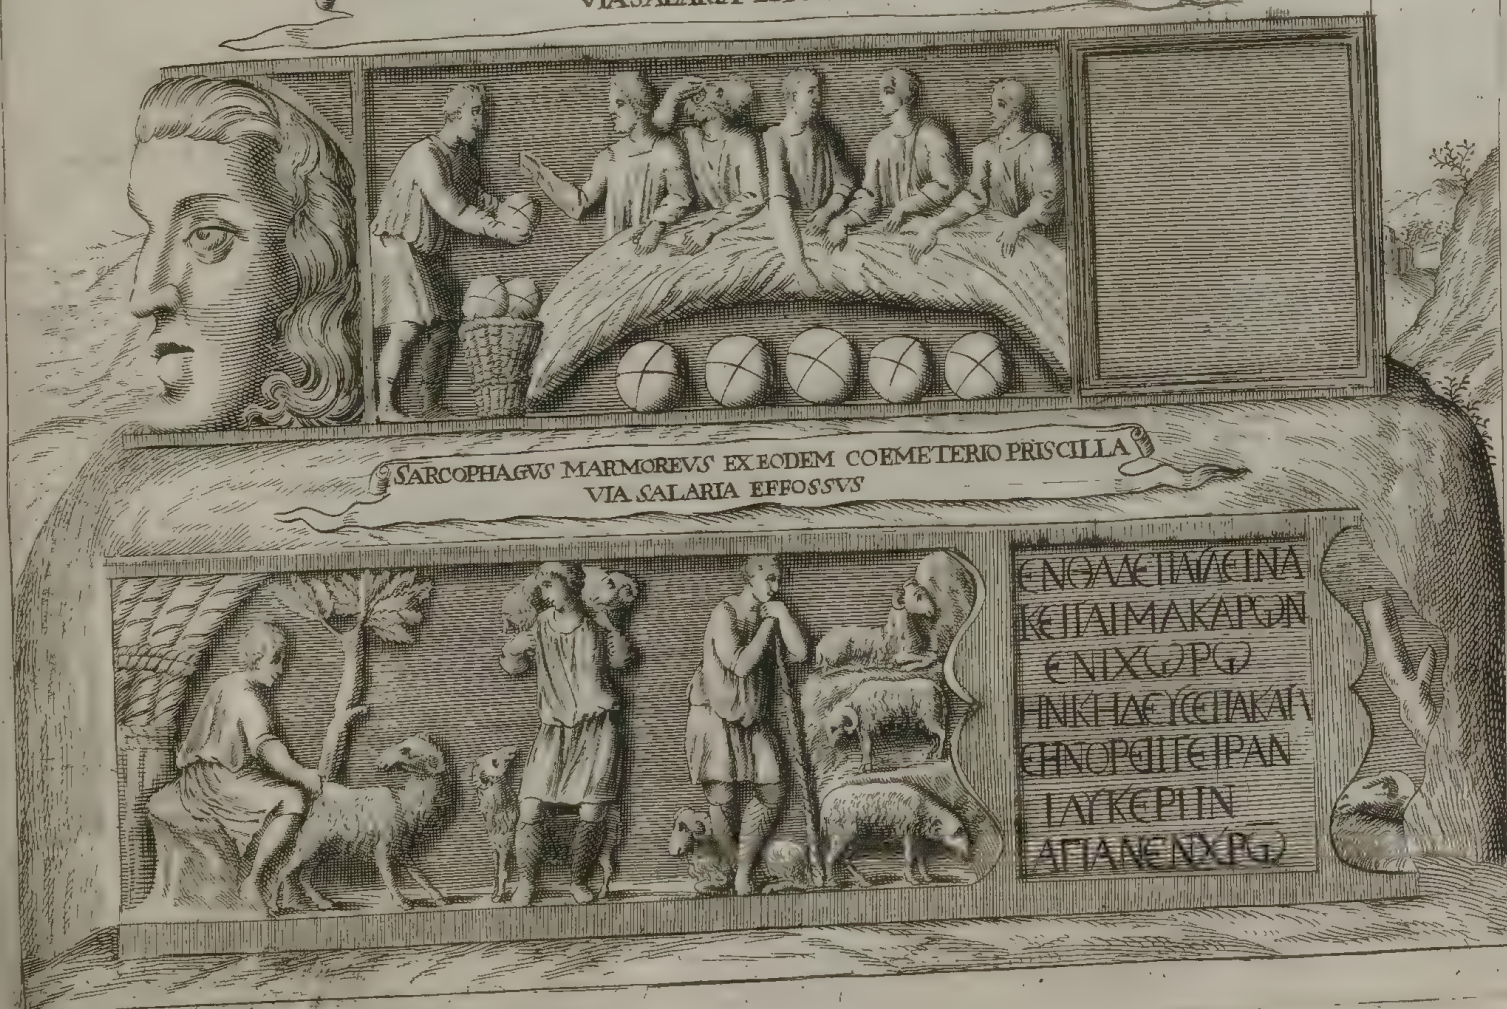 VIA SALARIA
SARCOPHAGVS MARMOREVS EX EODEM COEMETERIO PRISCILLA
VIA SALARIA EFFOSSVS
ЄΝΘΑΔЄΠΑΥΛЄΙΝΑ
ΚЄΙΤΑΙΜΑΚΑΡѠΝ
ЄΝΙΧѠΡѠ
ΗΝΚΗΔЄΥϹЄΠΑΚΑΤΑ
ЄΗΝΟΡЄΠΤЄΙΡΑΝ
ΓΛΥΚЄΡΗΝ
ΑΓΙΑΝЄΝΧΡѠ